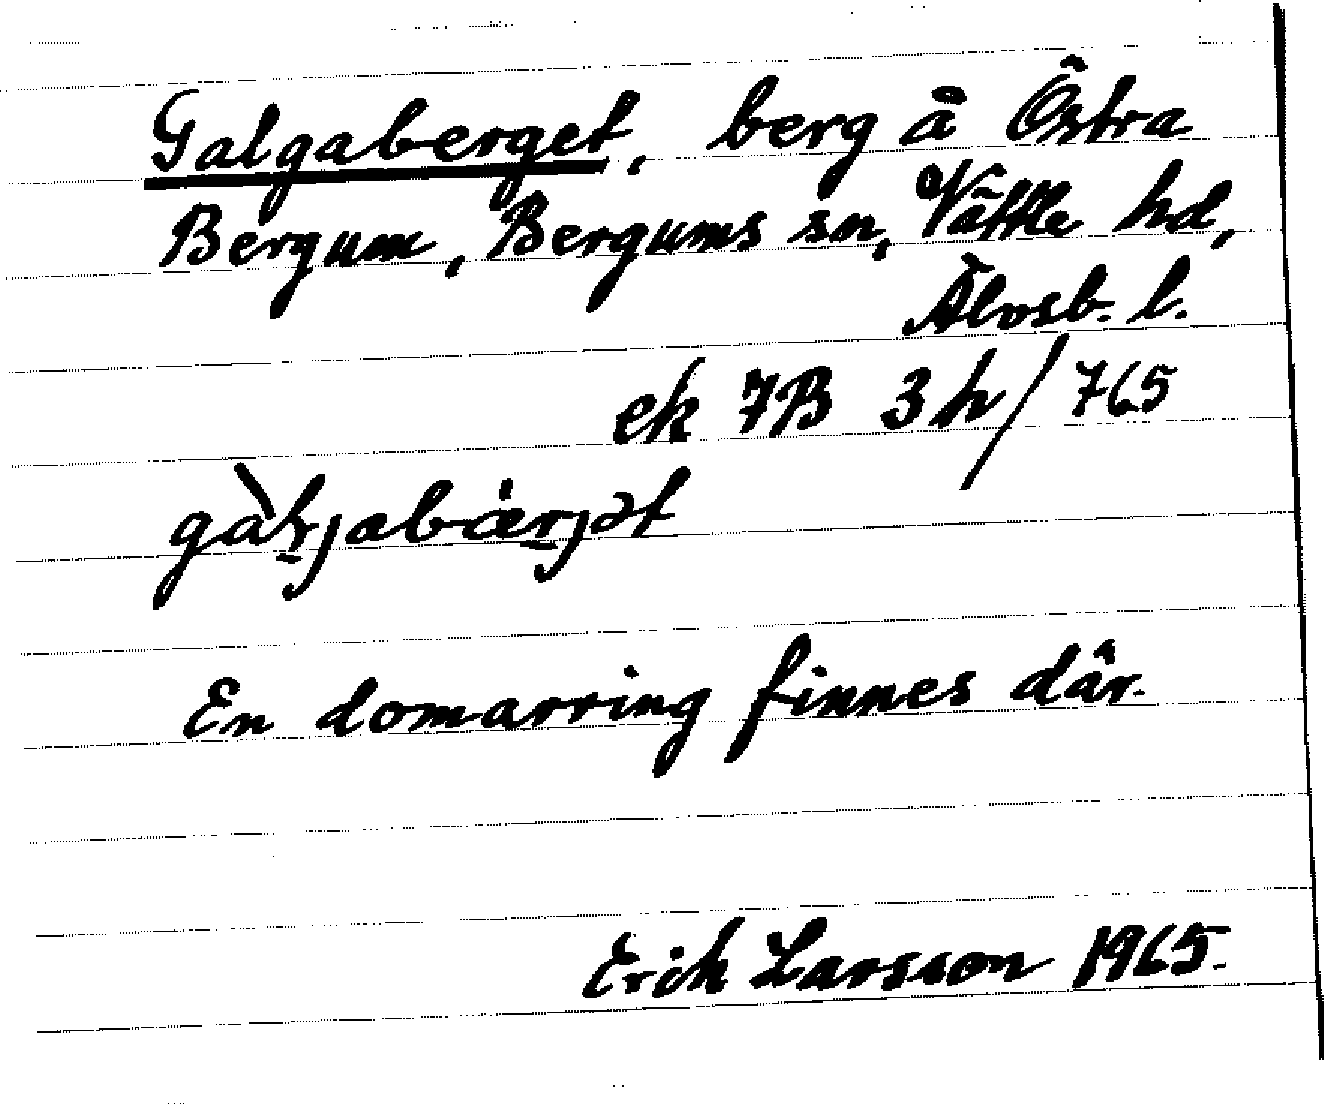 Galgaberget, berg å Östra
Bergum, Bergums sn, Vättle hd,
Älvsb. l.
ek 7B 3h/765
En domarring finnes där.
Erik Larsson 1965.